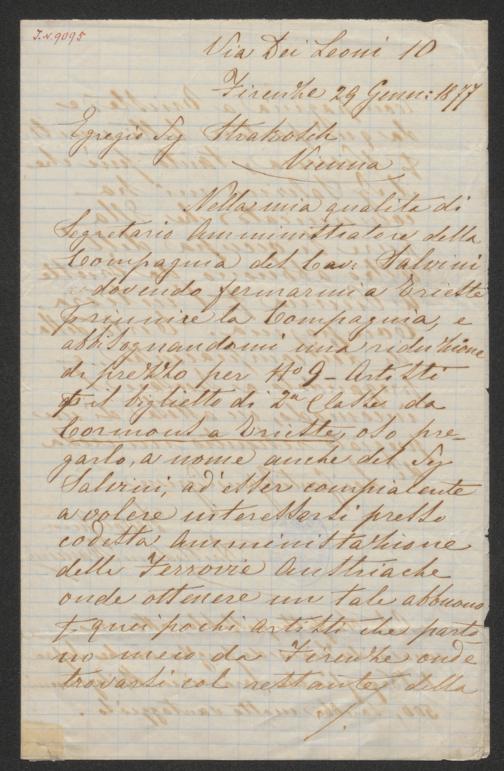 I.N. 9095
Via Dei Leoni 10
Firenze 29 Genn: 1877
Egregio Sig Strakosch
Vienna
Nella mia qualità di
Segretario Amministratore della
Compagnia del Cav: Salvini
e dovendo fermarmi a Trieste
p riunire la Compagnia, e
abbisognandomi una riduzione
di prezzo per No 9 - Artisti
p il biglietto di 2a Classe da
Cormons a Trieste, oso pre-
garlo, a nome anche del Sig
Salvini, ad esser compiacente
a volere interessarsi presso
codesta Amministrazione
delle Ferrovie Austriache
onde ottenere un tale abbuono
p quei pochi Artisti che parto
no meco da Firenze onde
trovarsi col restante della